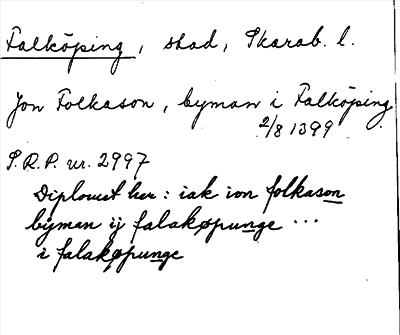 Falköping, stad, Skarab. l.
Jon Folkason, byman i Falköping
2/8 1399
S. R. P. nr. 2997
Diplomet har: iak ion folkason
byman ij falakøpunge ...
i falakøpunge